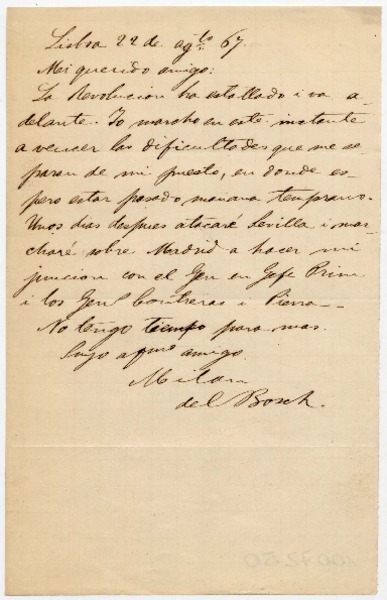 Lisboa 22 de agto 67.
Mi querido amigo:
La Revolucion ha estallado i va a-
delante. Yo marcho en este instante
a vencer las dificultades que me se-
paran de mi puesto, en donde es-
pero estar pasado mañana temprano.
Unos dias despues atacaré Sevilla i mar-
charé sobre Madrid a hacer mi
juncion con el Gen en Gefe Prim
i los Genl Contreras i Pierra
No tengo tiempo para mas.
Suyo affmo amigo.
Milan
del Bosch.